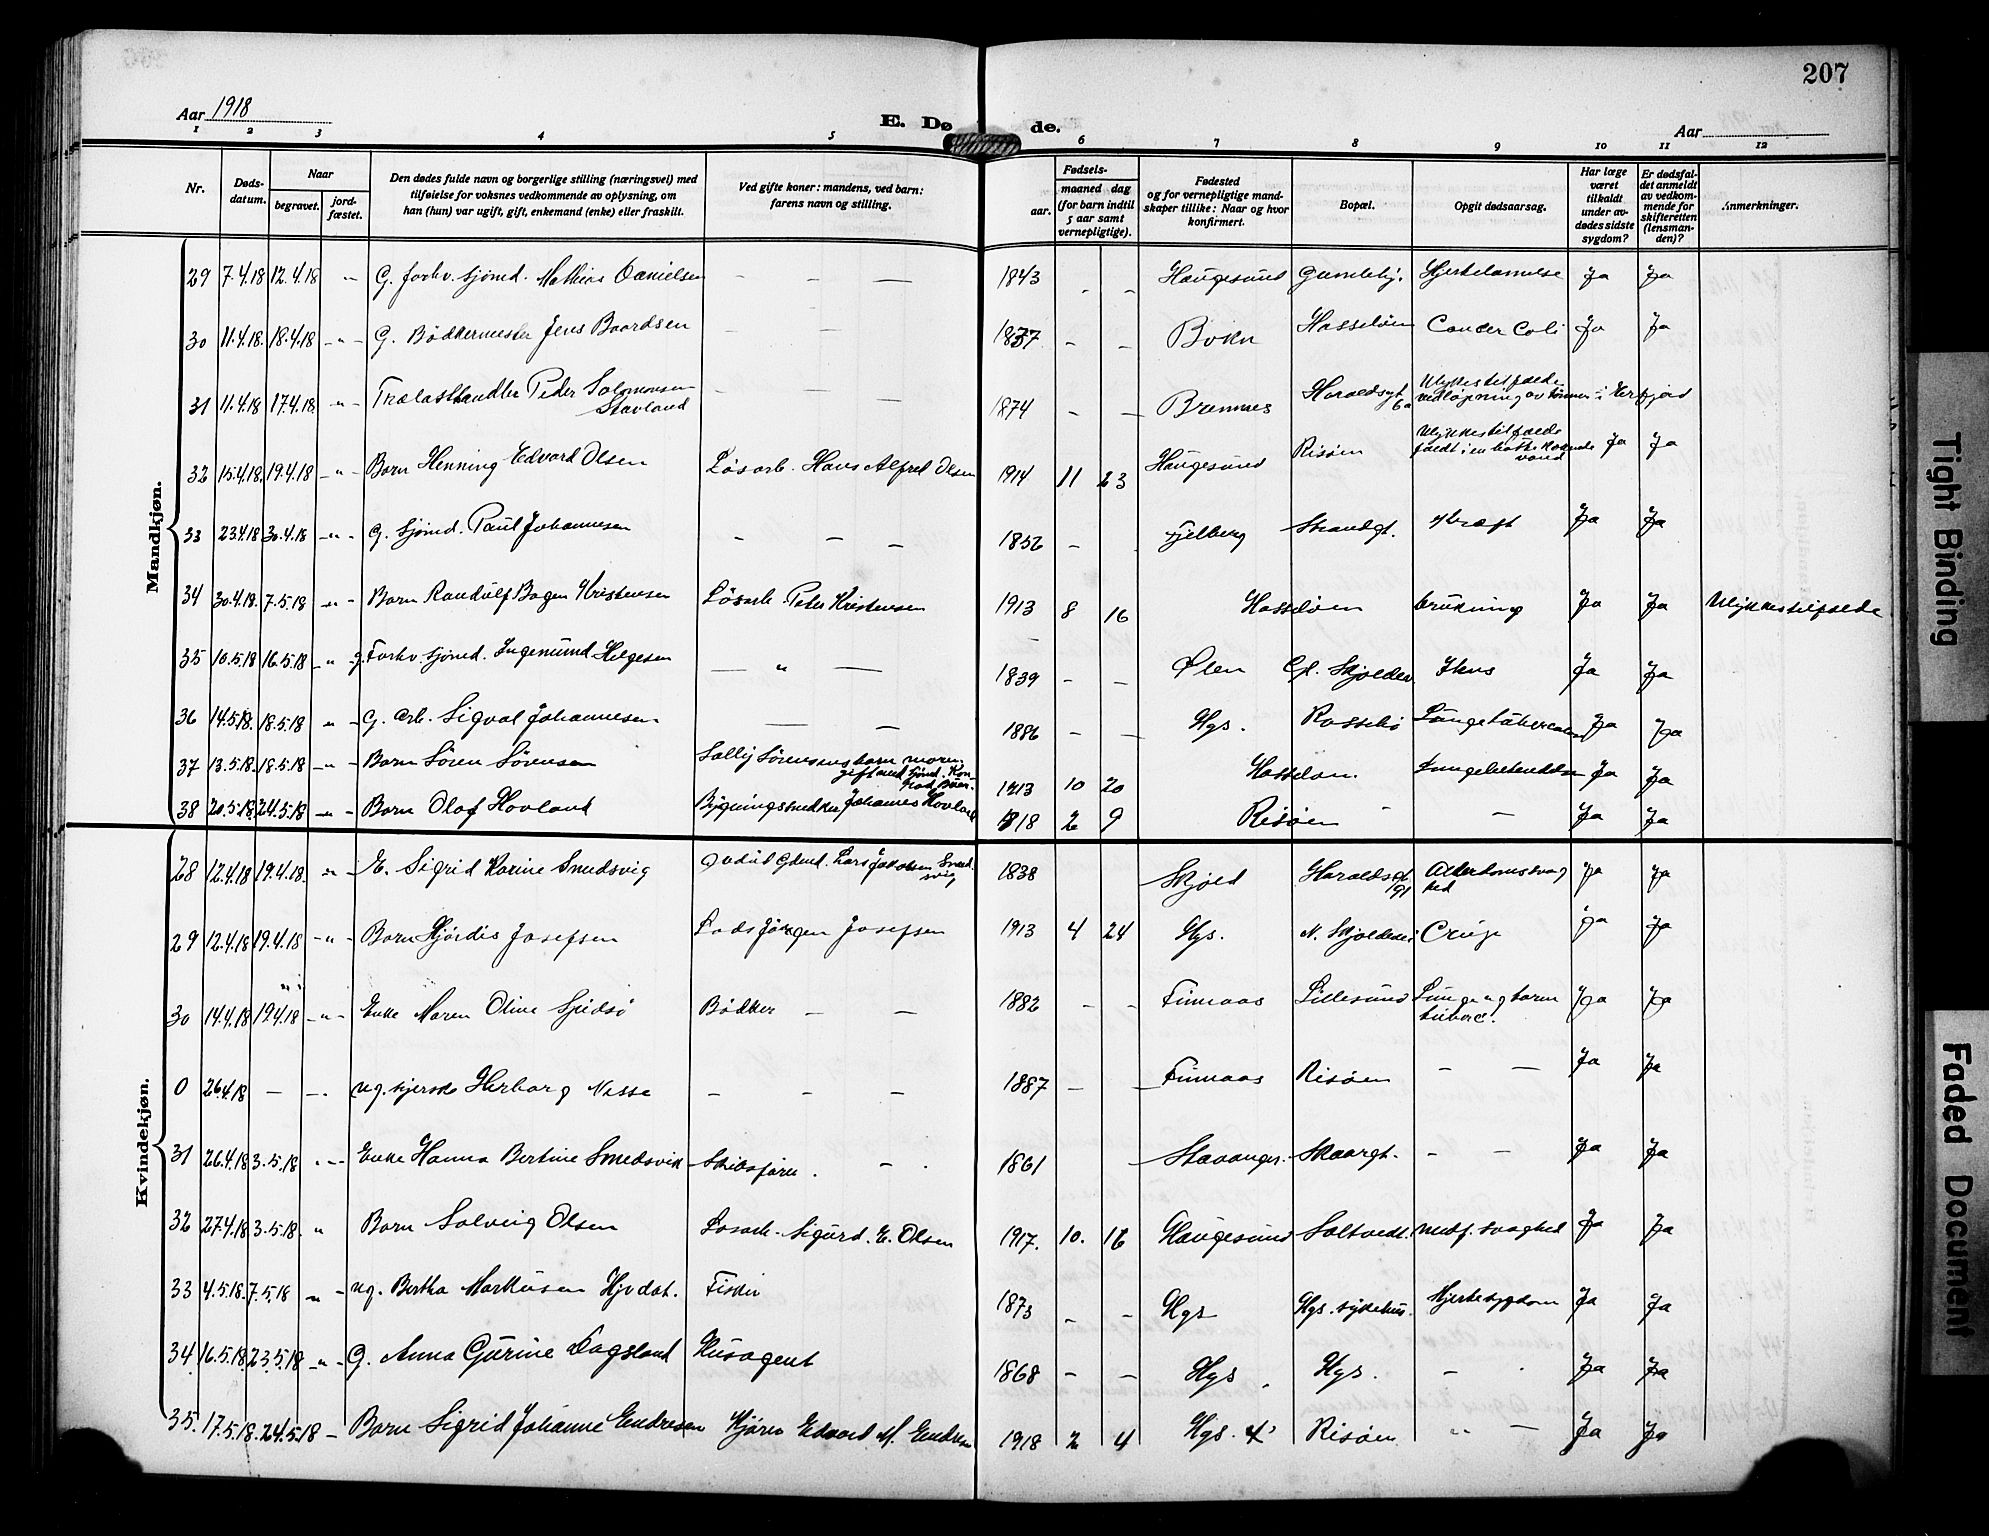 207
Aar 1918
E. Dø de.
Aar
1 2 3 4 5 6 7 8 9 10 11 12
Nr.
Døds-
datum.
Naar
begravet.
jord-
fæstet.
Den dødes fulde navn og borgerlige stilling (næringsvei) med
tilføielse for voksnes vedkommende av oplysning, om
han (hun) var ugift, gift, enkemand (enke) eller fraskilt.
Ved gifte koner: mandens, ved barn:
farens navn og stilling.
Fødsels-
aar.
maaned dag
(for barn indtil
5 aar samt
vernepligtige).
Fødested
og for vernepligtige mand-
skaper tillike: Naar og hvor
konfirmert.
Bopæl.
Opgit dødsaarsag.
Har læge
været
tilkaldt
under av-
dødes sidste
sygdom?
Er dødsfal-
det anmeldt
av vedkom-
mende for
skifteretten
(lensman-
den)?
Anmerkninger.
Mandkjøn.
29 7.4.18 12.4.18 -"- G. forhv. sjømd. Mathias Danielsen — — 1843 - - Haugesund Gamleby. Hjertelammelse Ja Ja
30 11.4.18. 18.4.18 -"- G. Bödkermester Jens Baardsen — — 1837 - - Bokn Hasseløen Cancer Coli Ja Ja
31 11.4.18 17.4.18 -"- Trælasthandler Peder Salomonsen
Stavland — — 1874 - - Bremnes Haraldsgt
6a Ulykkestilfælde
vedløpning av tømmer i Ja Ja
32 15.4.18. 19.4.18 -"- Barn Henning Edvard Olsen Løsarb. Hans Alfred Olsen 1914 11 23 Haugesund Risøen Ulykkestilfælde
faldt i en bøtte kogende
vand Ja Ja
33 23.4.18 30.4.18 -"- G. Sjømd. Paul Johannesen - - - 1852 - Fjelberg Strandgt. Kræft Ja Ja
34 30.4.18. 7.5.18 -"- Barn Randulf Bagen Kristensen Løsarb. Peder Kristensen 1913 8 16 Hasseløen Drukning Ja Ja Ulykkestilfælde
35 10.5.18 16.5.18 -"- g. Forhv. sjømd. Ingemund Helgesen — " — 1839 - - Ølen Gl. Skjolden Ikus Ja Ja
36 14.5.18. 18.5.18 " - G. Arb. Sigval Johannesen — — 1886 - - Hgs. Rossebø Lungetuberculose Ja Ja
37 13.5.18. 18.5.18 -"- Barn Søren Sørensen Sally Sørensens barn moren
gift med sjømd. Kon-
rad 1913 10 20 Hasseløen Lungebetændelse Ja Ja
38 20.5.18. 24.5.18 -"- Barn Olaf Hovland Bygningssnedker Johannes Hovland 1918 2 9 Risøen - — Ja Ja
Kvindekjøn.
28 12.4.18 19.4.18. -"- E. Sigrid Karine Smedsvig Avdøde Gdmd. Lars Jakobsen Smed-
svig 1838 Skjold Haraldsgt
191 Alderdomssvag
hed Ja Ja
29 12.4.18 19.4.18 -"- Barn Hjördis Josefsen Lods Jørgen Josefsen 1913 4 24 Hgs. N. Skjoldevei Croup Ja Ja
30 14.4.18 19.4.18 -"- Enke Maren Oline Spidsö Bödker — — 1882 - - Finnaas Lillesund Lunge og tarm
tuberc. Ja Ja
0 26.4.18 — -.- ug. syerske Herborg Nesse - - - 1887 - — Finnaas Risøen - — Ja Ja
31 26.4.18 3.5.18 -"- Enke Hanna Bertine Smedsvik Skibsfører. - 1861 Stavanger. Skaargt. - - Ja Ja
32 27.4.18 3.5.18. " Barn Solveig Olsen Løsarb. Sigurd. E. Olsen 1917. 10. 16 Haugesund Saltvedt. Medf. svaghed Ja Ja
33 4.5.18. 7.5.18 " - ug. Bertha Markusen Hjvdat. Fisker 1873 - - Hgs Hgs. sykehus. Hjertesygdom Ja Ja
34 16.5.18. 23.5.18 -"- G. Anna Gurine Dagsland Husagent 1868 - - Hgs Hgs. - Ja Ja
35. 17.5.18. 24.5.18 - Barn Sigrid Johanne Endresen Kjører Edvard M. Endresen 1918 2 4 Hgs. Risøen " — Ja Ja
Tight Binding
Faded Document